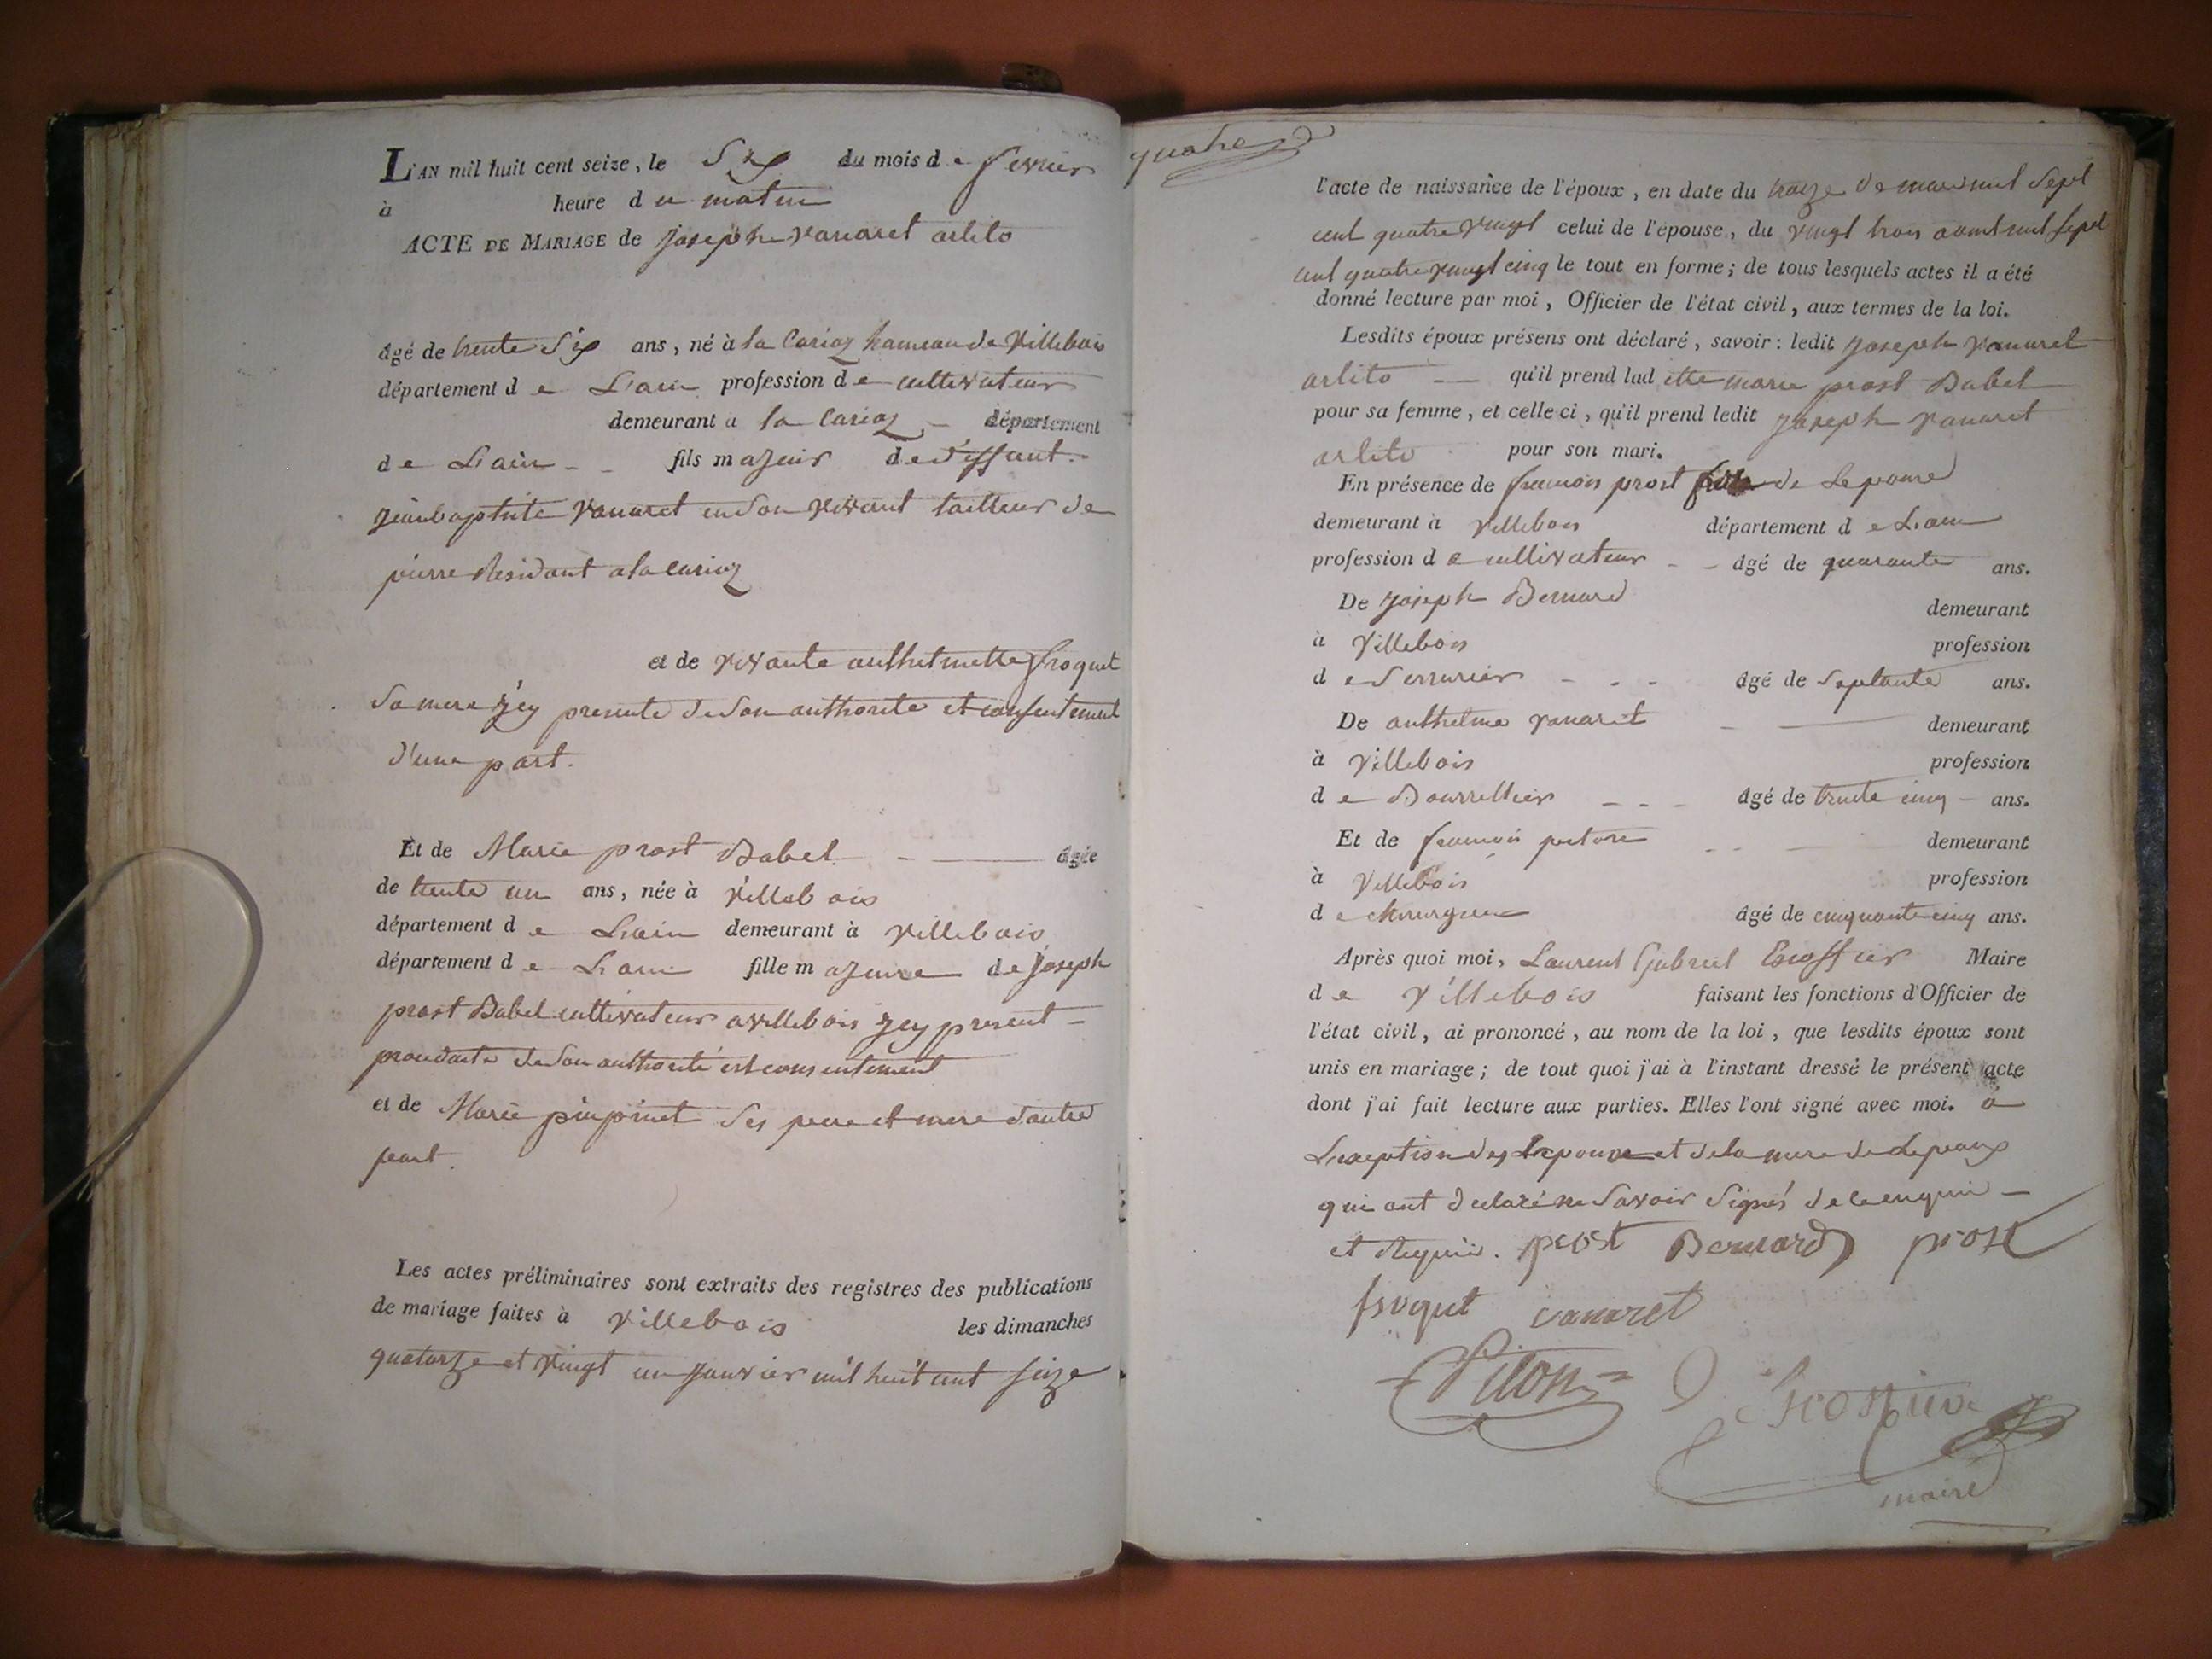 L'AN mil huit cent seize, le Six du mois de fevrier
à heure du matin
ACTE DE MARIAGE de Joseph vanaret arlito
âgé de trente Six ans, né à la Carioz hameau de Villebois
département de L'ain profession de cultivateur
demeurant a la Carioz département
de L'ain fils majeur de deffunt
jeanbaptiste vanaret en son vivant tailleur de
pierre Residant a la carioz
et de vivante anthelmette froquet
Sa mere jcy presente de son authorite et consentement
d'une part.
Et de Marie prost Babel âgée
de trente un ans, née à villebois
département de L'ain demeurant à villebois
département de L'ain fille majeure de joseph
prost Babel cultivateur a villebois jcy present
de son authorité et consentement
et de Marie pinpinet Ses pere et mere d'autre
part.
Les actes préliminaires sont extraits des registres des publications
de mariage faites à villebois les dimanches
quatorze et vingt un janvier mil huit cent seize
quatre
l'acte de naissance de l'époux, en date du treize de mars mil Sept
cent quatre vingt celui de l'épouse, du vingt trois aout mil Sept
cent quatre vingt cinq le tout en forme; de tous lesquels actes il a été
donné lecture par moi, Officier de l'état civil, aux termes de la loi.
Lesdits époux présens ont déclaré, savoir: ledit joseph vanaret
arlito qu'il prend ladette marie prost Babel
pour sa femme, et celle ci, qu'il prend ledit joseph vanaret
arlito pour son mari.
En présence de francois prost de Lepouse
demeurant à villebois département de L'ain
profession de cultivateur âgé de quarante ans.
De joseph Bernard demeurant
à villebois profession
de Serrurier âgé de Septante ans.
De anthelme vanaret demeurant
à villebois profession
de Bourrellier âgé de trente cinq ans.
Et de francois pitore demeurant
à villebois profession
de chirurgien âgé de cinquante cinq ans.
Après quoi moi, Laurent Gabriel Maire
de villebois faisant les fonctions d'Officier de
l'état civil, ai prononcé, au nom de la loi, que lesdits époux sont
unis en mariage; de tout quoi j'ai à l'instant dressé le présent acte
dont j'ai fait lecture aux parties. Elles l'ont signé avec moi. a
Lexeption des Lepouse et de la mere de Lepoux
qui ont declaré ne Savoir Signés de ce enquis
et Requis. prost Bernard prost
froquet vanaret
maire